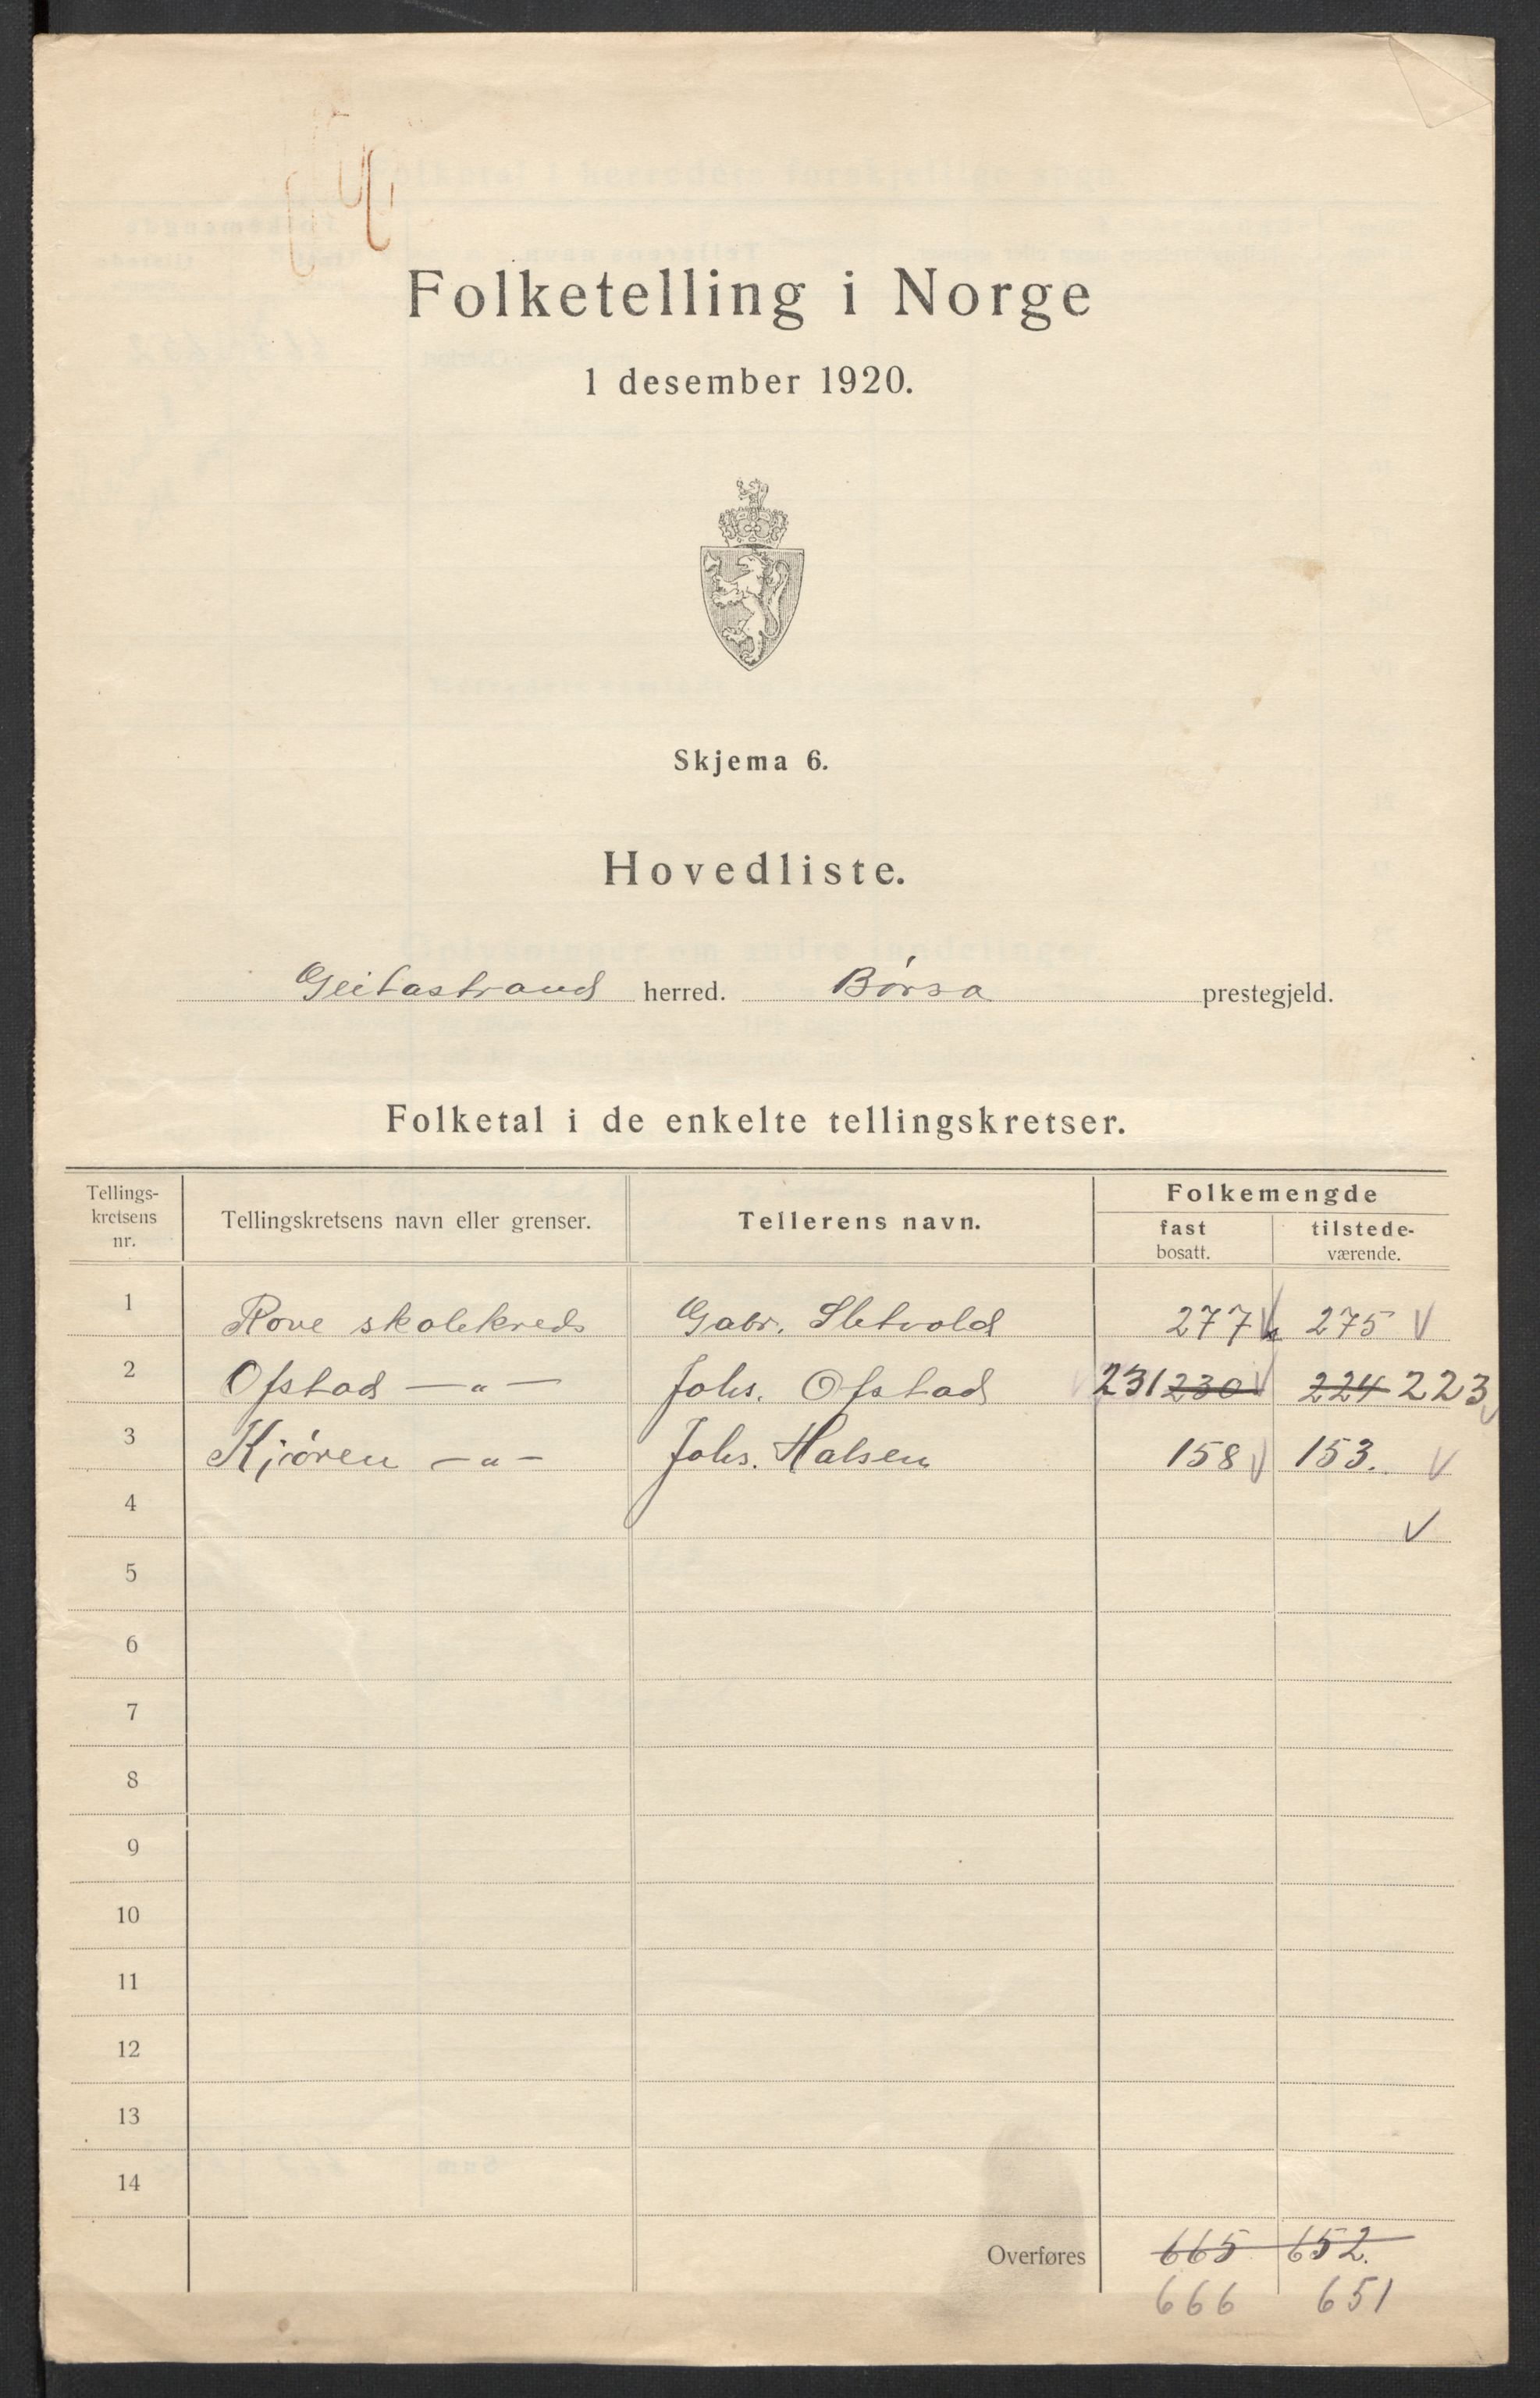 Folketelling i Norge
1 desember 1920.
Skjema 6.
Hovedliste.
Geitastrand herred. Børsa prestegjeld.
Folketal i de enkelte tellingskretser.
Tellings-
kretsens
nr.
Tellingskretsens navn eller grenser.
Tellerens navn.
Folkemengde
fast
bosatt.
tilstede-
værende.
1 Rove skolekreds Gabr. Sletvold 277 275
2 Ofstad — „ — Johs. Ofstad 231 230 224 223
3 Kjøren — „ — Johs. Halsen 158 153.
4
5
6
7
8
9
10
11
12
13
14
Overføres 665 652.
666 651